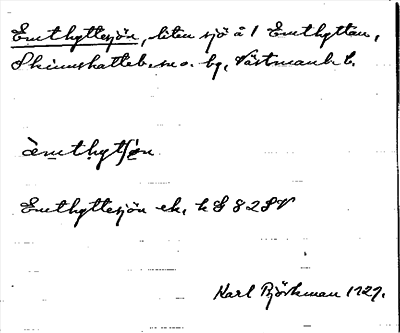 Emthyttesjön, liten sjö å 1 Emthyttan,
Skinnskatteb. sn o. bg, Västmanl. l.
Emthyttesjön ek. kG 82SV
Karl Björkman 1929.